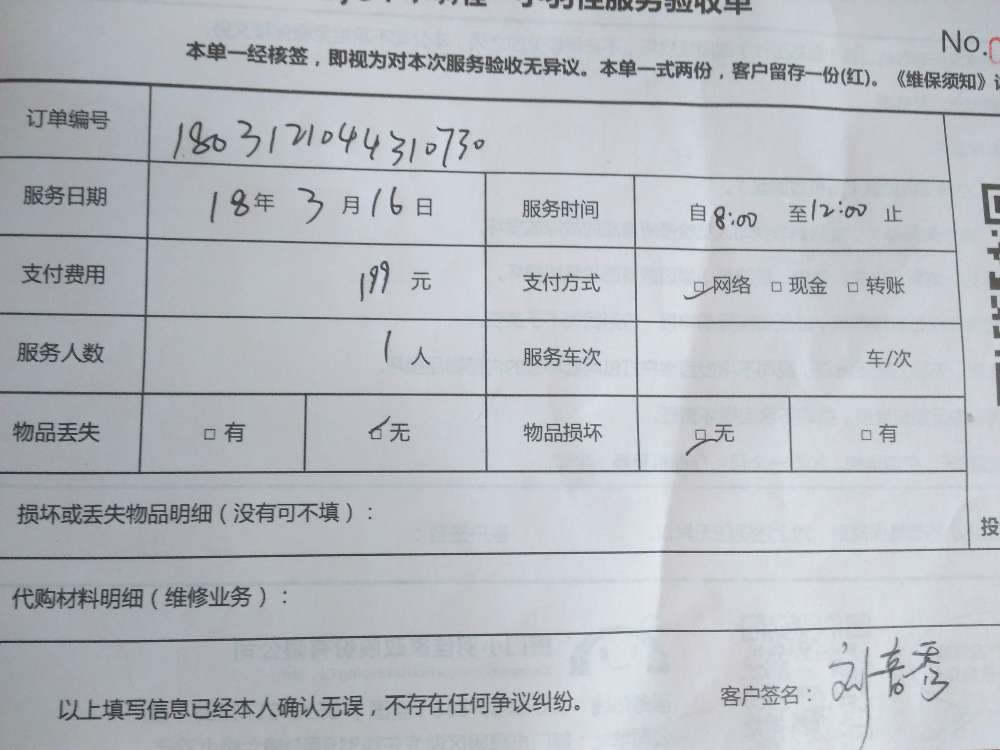 服务验收单
No.
本单一经核签，即视为对本次服务验收无异议。本单一式两份，客户留存一份(红)。《维保须知》
订单编号 1803121044310730
服务日期 18年 3月16日 服务时间 自8:00 至12:00止
支付费用 199元 支付方式 □网络 □现金 □转账
服务人数 1人 服务车次 车/次
物品丢失 □有 □无 物品损坏 □无 □有
损坏或丢失物品明细（没有可不填）：
投
代购材料明细（维修业务）：
以上填写信息已经本人确认无误，不存在任何争议纠纷。 客户签名：刘喜秀